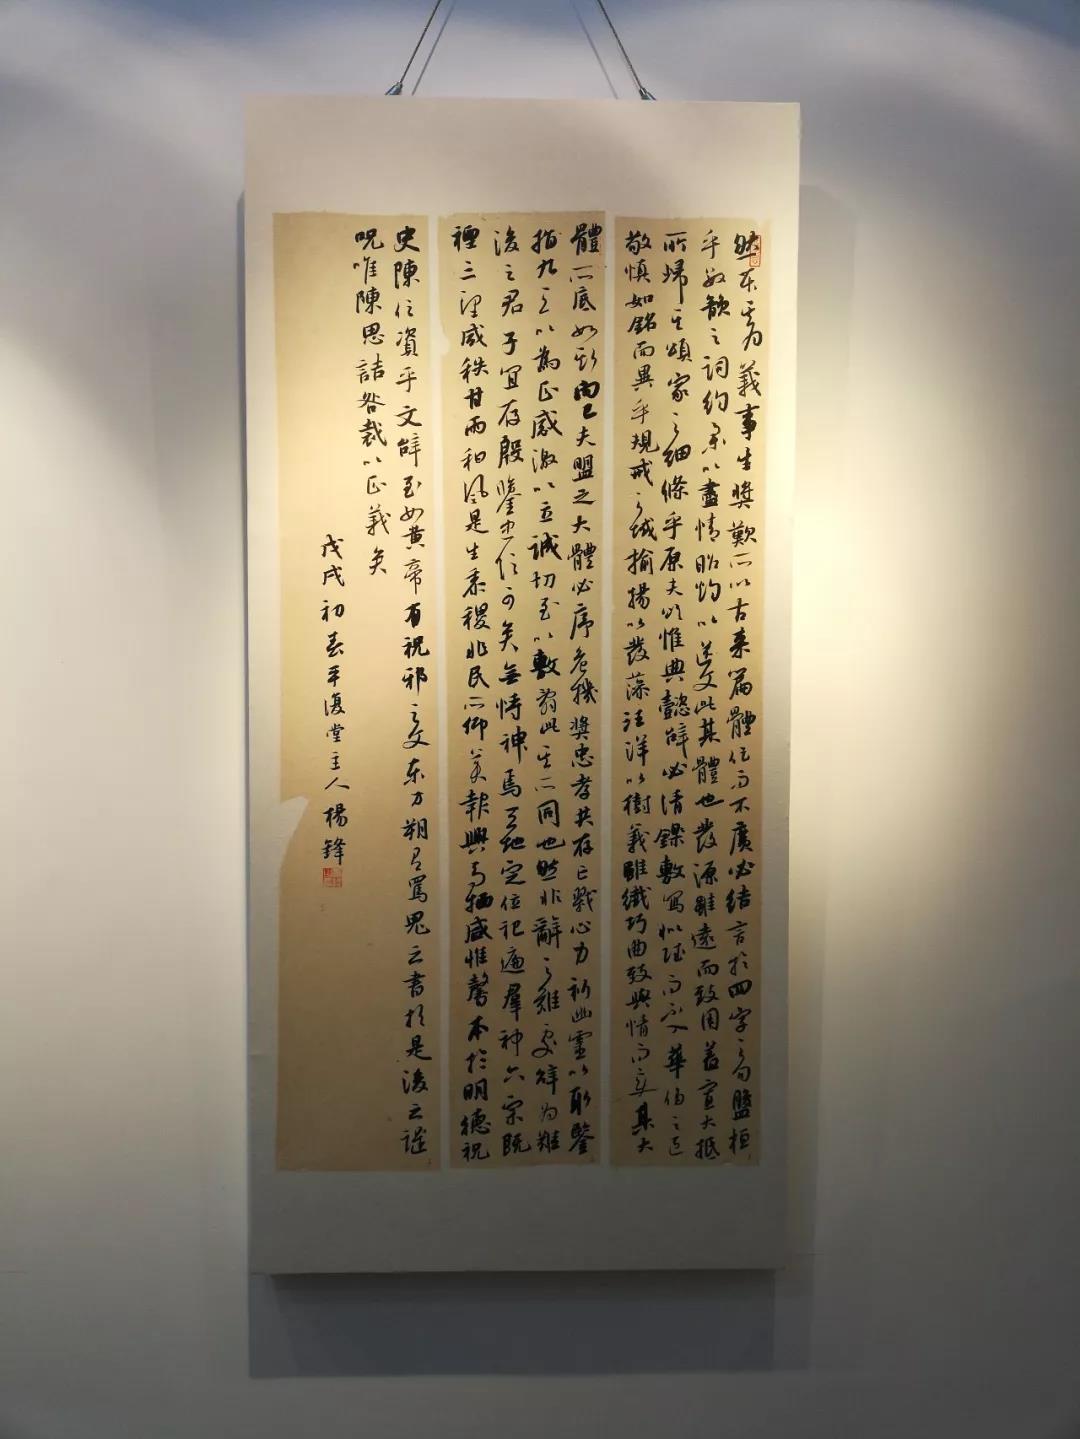 然本其为義事生獎歎所以古来篇體促而不廣必结言於四字之句盤桓
乎数韻之词约举以盡情昭灼以送文此其體也發源雖遠而致用盖寡大抵
所歸其頌家之细條乎原夫頌惟典懿辭必清鑠敷寫似赋而不入華侈之區
敬慎如銘而異乎規戒之域揄揚以發藻汪洋以樹義雖纖巧曲致與情而变其大
體所底如斯而已夫盟之大體必序危機獎忠孝共存亡戮心力祈幽靈以取鑒
指九天以為正感激以立誠切至以敷辭此其所同也然非辭之難處辭为難
後之君子宜存殷鑒忠信可矣無恃神焉天地定位祀遍羣神六宗既
禋三望咸秩甘雨和風是生黍稷兆民所仰美報興焉犧盛惟馨本於明德祝
史陳信資乎文辭至如黄帝有祝邪之文东方朔有罵鬼之書於是後之譴
呪唯陳思詰咎裁以正義矣
戊戌初春平復堂主人楊鋒